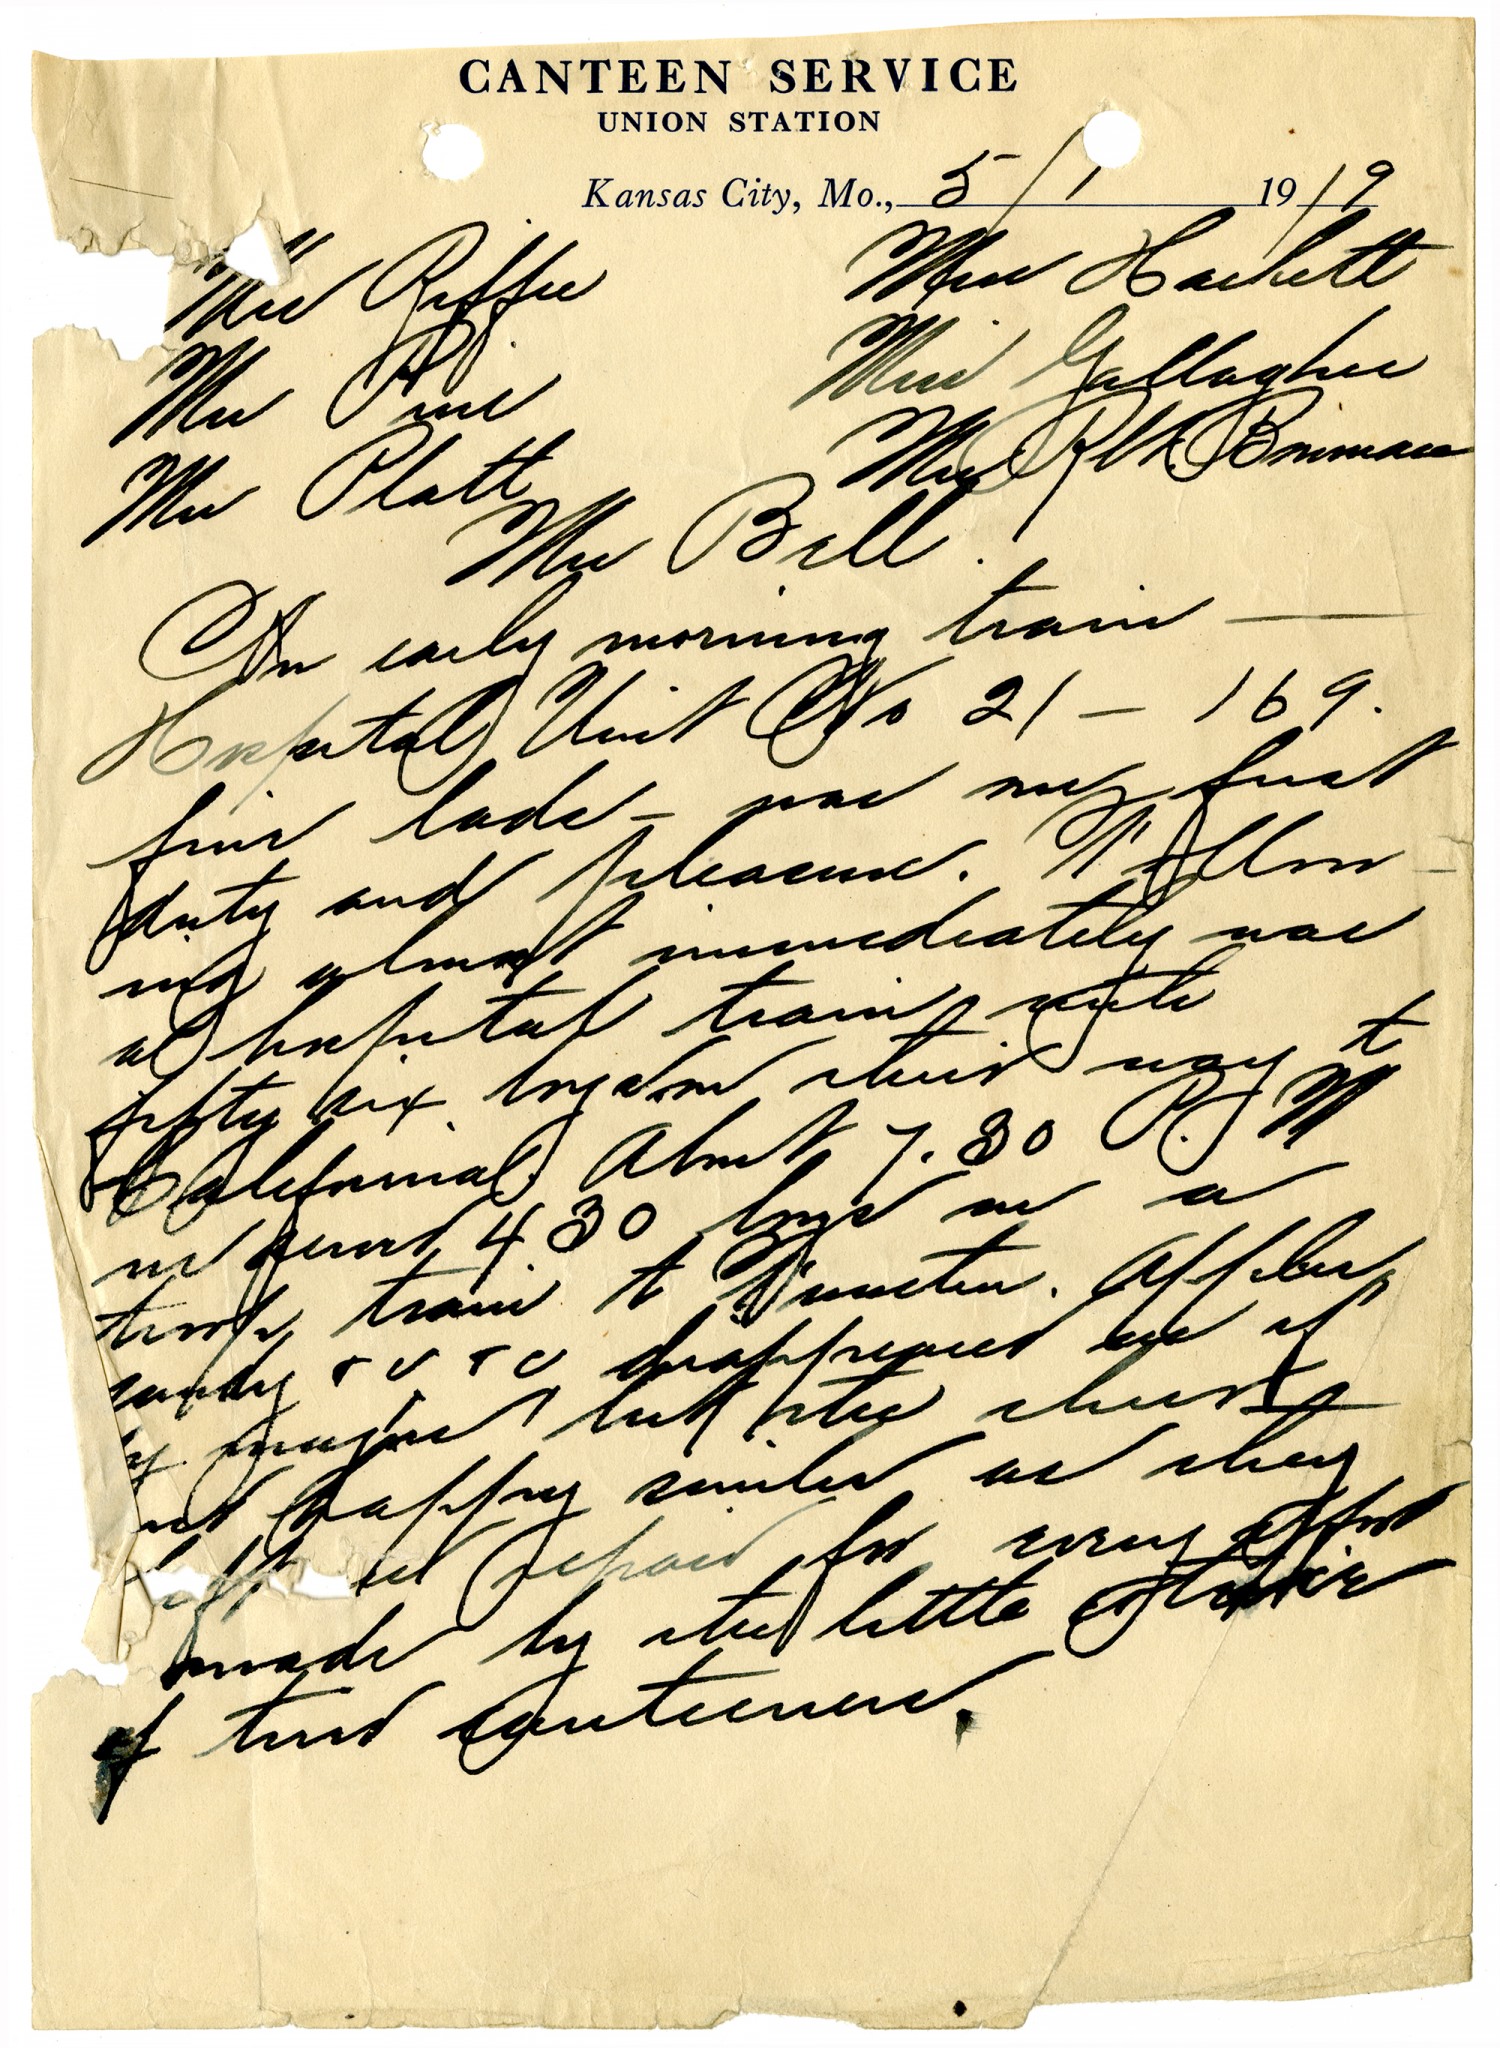 CANTEEN SERVICE
UNION STATION
Kansas City, Mo., 5/1 1919
Mrs Riffe Miss Hackett
Mrs Miss Gallagher
Mrs Platt Mrs
Mrs Bell.
An early morning train —
Hospital Unit No 21 — 169.
fine lads — was my first
duty and pleasure. Follow-
ing almost immediately was
a hospital train with
fifty six boys on their way to
California. About 7.30 P.M
we served 430 boys on a
troop train to Funston. Apples,
candy disappeared as if
by magic but the cheers
and happy smiles as they
left us repaid for every effort
made by the little
of tired canteeners.